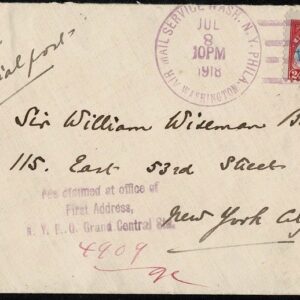 AIR MAIL SERVICE WASH. N.Y. PHILA.
JUL
8
10PM
1918
WASHINGTON
Sir William Wiseman B
115. East 53rd Street
New York City
Fee claimed at office of
First Address,
N. Y. P. O. Grand Central Sta.
4909